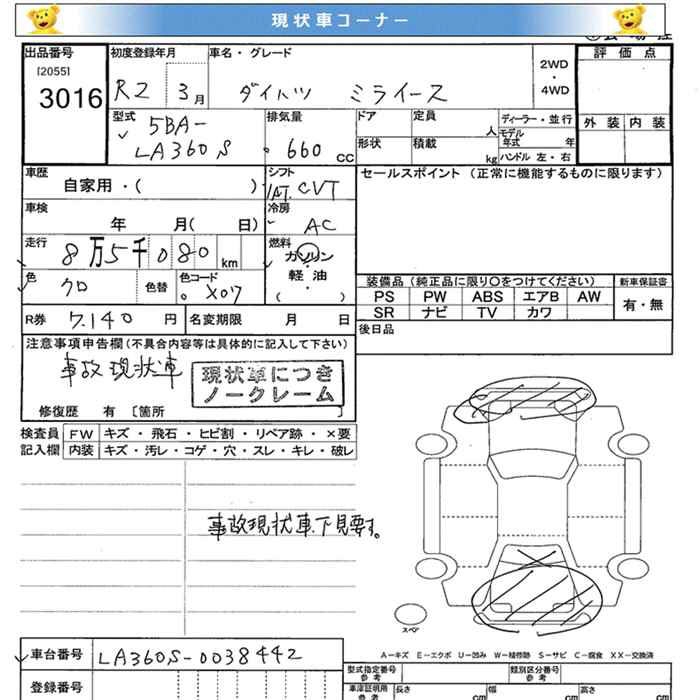 現状車コーナー
出品番号
[2055]
3016
初度登録年月
R2 3月
車名・グレード
ダイハツ ミライース
2WD
・
4WD
評価点
外装 内装
型式
5BA-
LA360S
排気量
660 CC
ドア
定員
人
形状
積載
kg
ディーラー・並行
モデル
年式 年
ハンドル 左・右
車歴
自家用・( )
シフト
AT. CVT
セールスポイント (正常に機能するものに限ります)
車検
年 月( 日)
冷房
AC
走行
8万5千080 km
燃料
ガソリン
軽油
( ・ )
色
クロ
色替
色コード
X07
装備品(純正品に限り○をつけてください)
新車保証書
PS PW ABS エアB AW
有・無
SR ナビ TV カワ
R券 7.140 円
名変期限 月 日
後日品
注意事項申告欄(不具合内容等は具体的に記入して下さい)
事故現状車
現状車につき
ノークレーム
修復歴 有 [箇所 ]
検査員
記入欄
FW キズ・飛石・ヒビ割・リペア跡・×要
内装 キズ・汚レ・コゲ・穴・スレ・キレ・破レ
事故現状車、下見要。
スペア
A－キズ E－エクボ U－凹み W－補修跡 S－サビ C－腐食 XX－交換済
車台番号 LA360S-0038442
登録番号
型式指定番号
参考
類別区分番号
参考
車庫証明用
参考
長さ cm
幅 cm
高さ cm